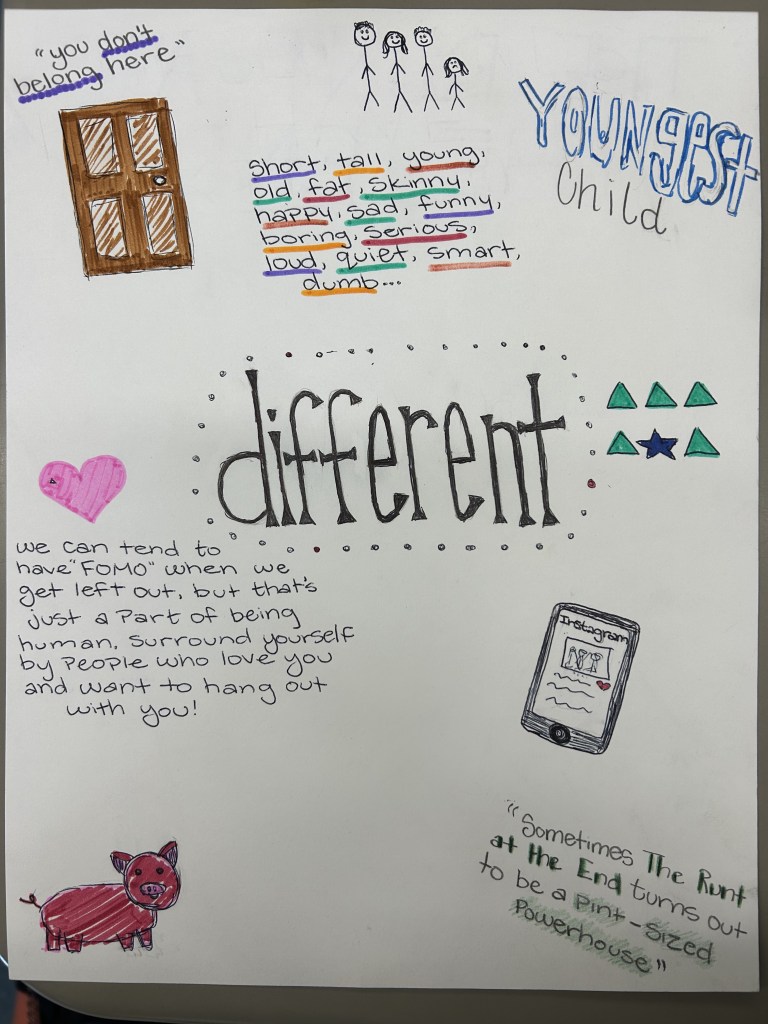 "you don't
belong here"
Youngest
Child
short, tall, young,
old, fat, skinny,
happy, sad, funny,
boring, serious,
loud, quiet, smart,
dumb...
different
we can tend to
have "FOMO" when we
get left out, but that's
just a part of being
human. Surround yourself
by people who love you
and want to hang out
with you!
Instagram
"Sometimes The Runt
at the End turns out
to be a pint-sized
Powerhouse"